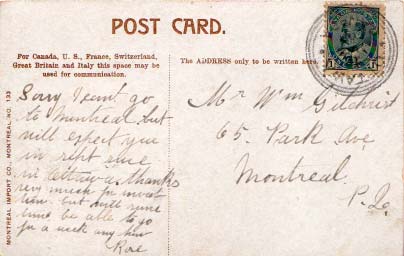 POST CARD.
For Canada, U. S., France, Switzerland,
Great Britain and Italy this space may be
used for communication.
The ADDRESS only to be written here.
MONTREAL IMPORT CO., MONTREAL. NO. 133
Sorry I can't go
to Montreal but
will expect you
in
in Ottawa. thanks
very much for invit
tion. but will
time be able to go
for a week any how
Rose
Mr Wm Gilchrist
65. Park Ave
Montreal.
P.Q.